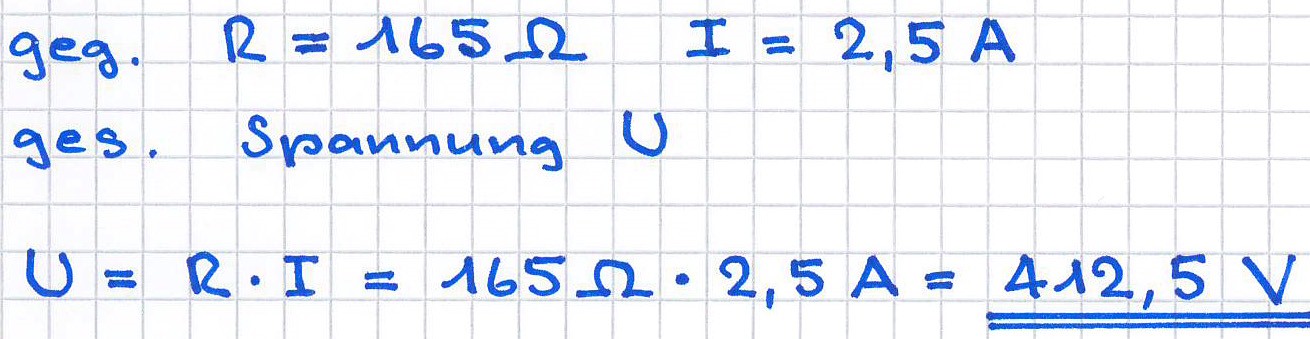 geg. R = 165 Ω I = 2,5 A
ges. Spannung U
U = R · I = 165 Ω · 2,5 A = 412,5 V